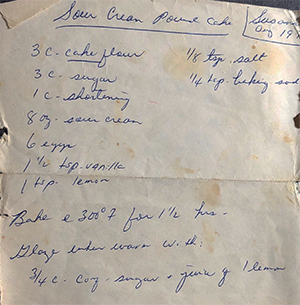 Sour Cream Pound Cake
Susan
Aug 19
3 c. cake flour
1/8 tsp. salt
3 c. sugar
1/4 tsp. baking soda
1 c. shortening
8 oz. sour cream
6 eggs
1 1/2 tsp. vanilla
1 tsp. lemon
Bake @ 300° F for 1 1/2 hrs.
Glaze when warm with:
3/4 c. conf. sugar + juice of 1 lemon